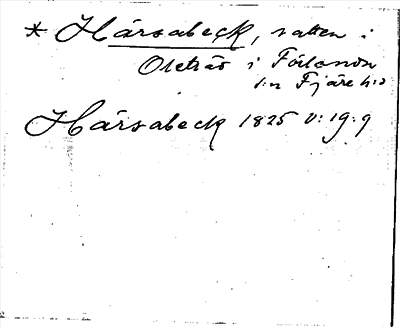 * Hårsabeck, vatten i
Oletrås i Förlanda
sn Fjäre hd
Hårsabeck 1825 V: 19: 9